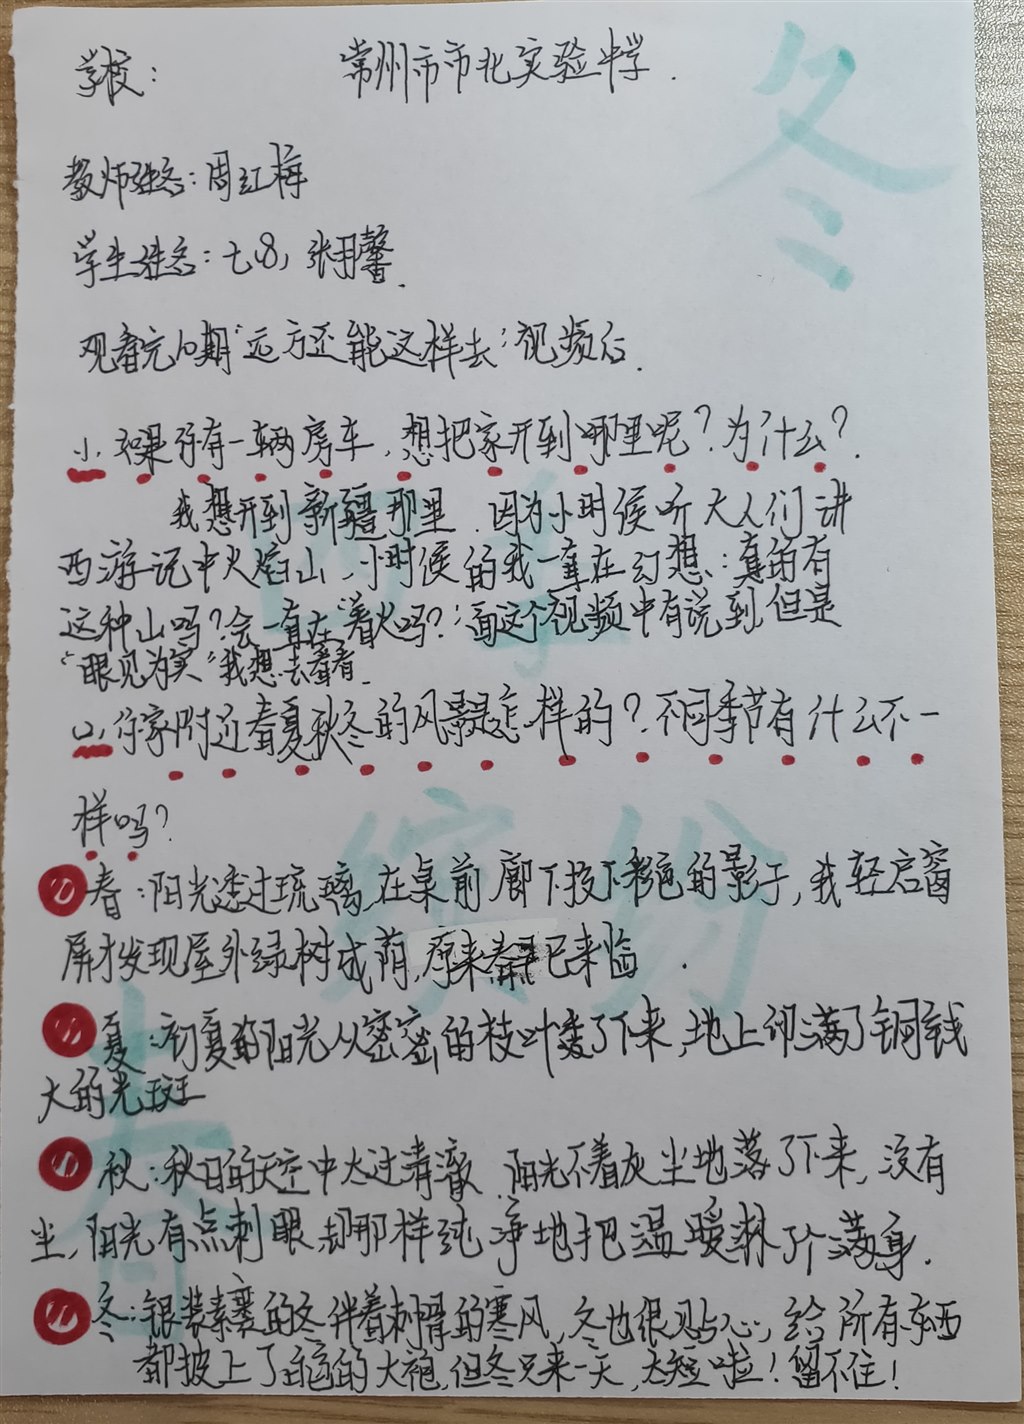 冬
学校：
常州市市北实验中学.
教师姓名：周红梅
学生姓名：七8, 张玥馨.
观看完10期“远方还能这样去”视频后.
(1). 如果你有一辆房车, 想把家开到哪里呢？为什么？
我想开到新疆那里, 因为小时候听大人们讲
西游记中火焰山, 小时候的我一直在幻想：真的有
这种山吗？会一直在“着火吗？”面这个视频中有说到,但是
“眼见为实”我想去看看.
(2).你家附近春夏秋冬的风景是怎样的？不同季节有什么不一
样吗？
缤纷
(1)春：阳光透过琉璃,在桌前廊下投下彩色的影子, 我轻启窗
屏才发现屋外绿树成荫,原来春早已来临.
(2)夏：初夏的阳光从密密的枝叶透了下来,地上印满了铜钱
大的光斑
春
(3)秋：秋日的天空中太过清澈, 阳光不着灰尘地落了下来, 没有
尘, 阳光有点刺眼,却那样纯净地把温暖淋了个满身.
(4)冬：银装素裹的冬伴着刺骨的寒风, 冬也很贴心, 给所有东西
都披上了白色的大袍,但冬只来一天, 太短啦！留不住！